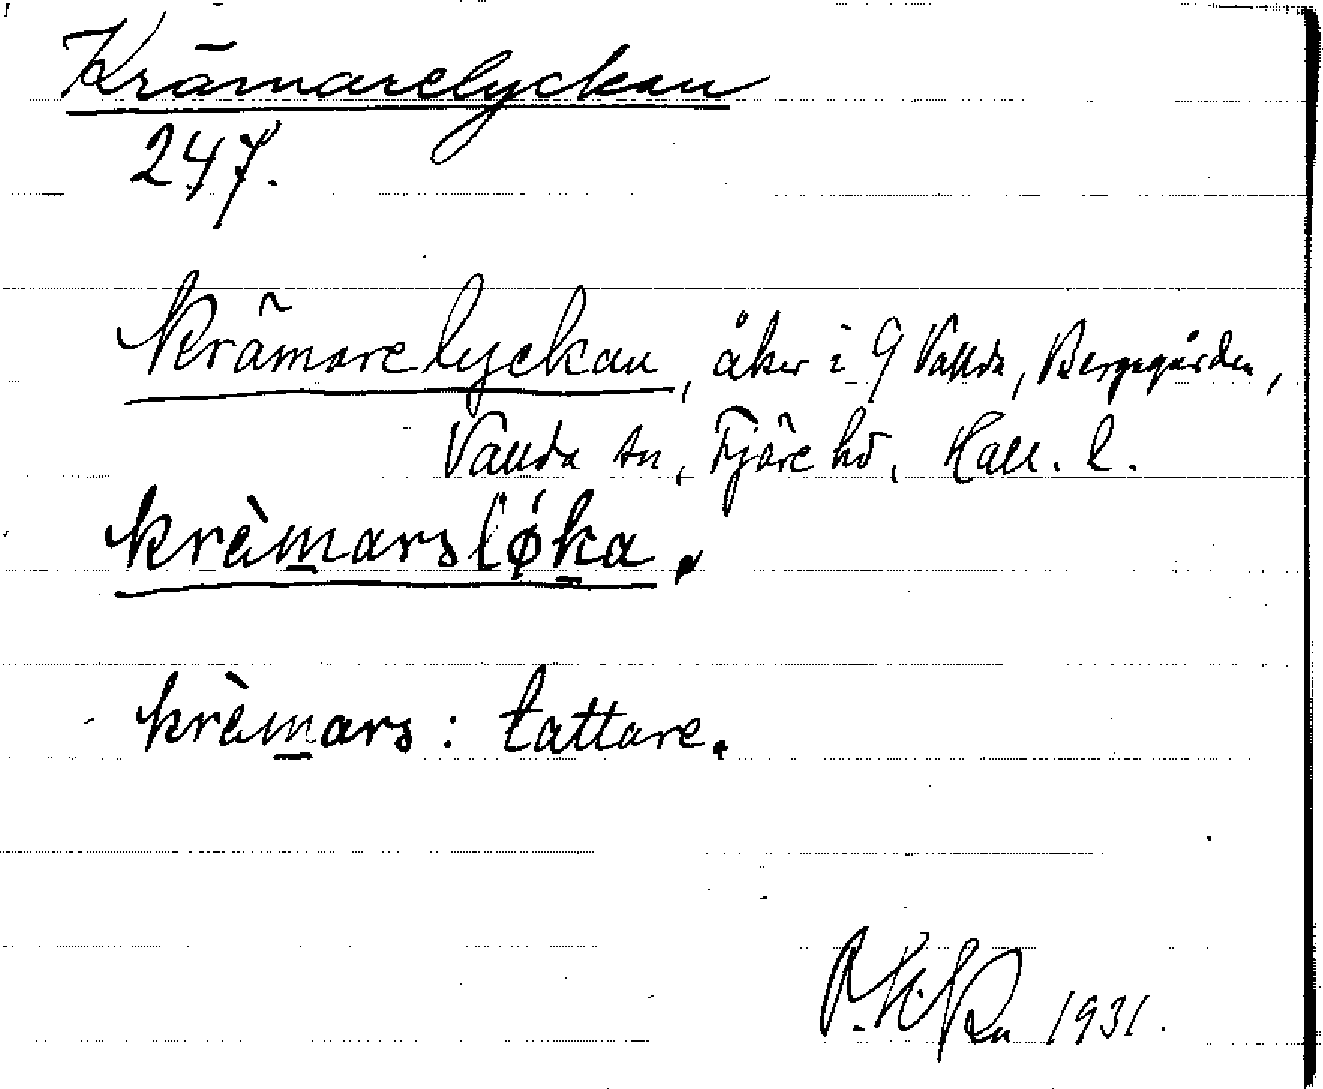 Krämarelyckan
247.
Krämarelyckan, åker i 9 Vallda, Bergegården,
Vallda sn, Fjäre hd, Hall. l.
kràmarsløka.
kràmars: tattare.
1931.